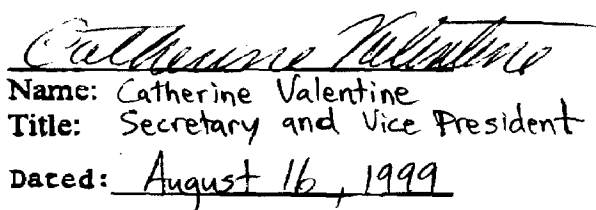 Catherine Valentine
Name: Catherine Valentine
Title: Secretary and Vice President
Dated: August 16, 1999